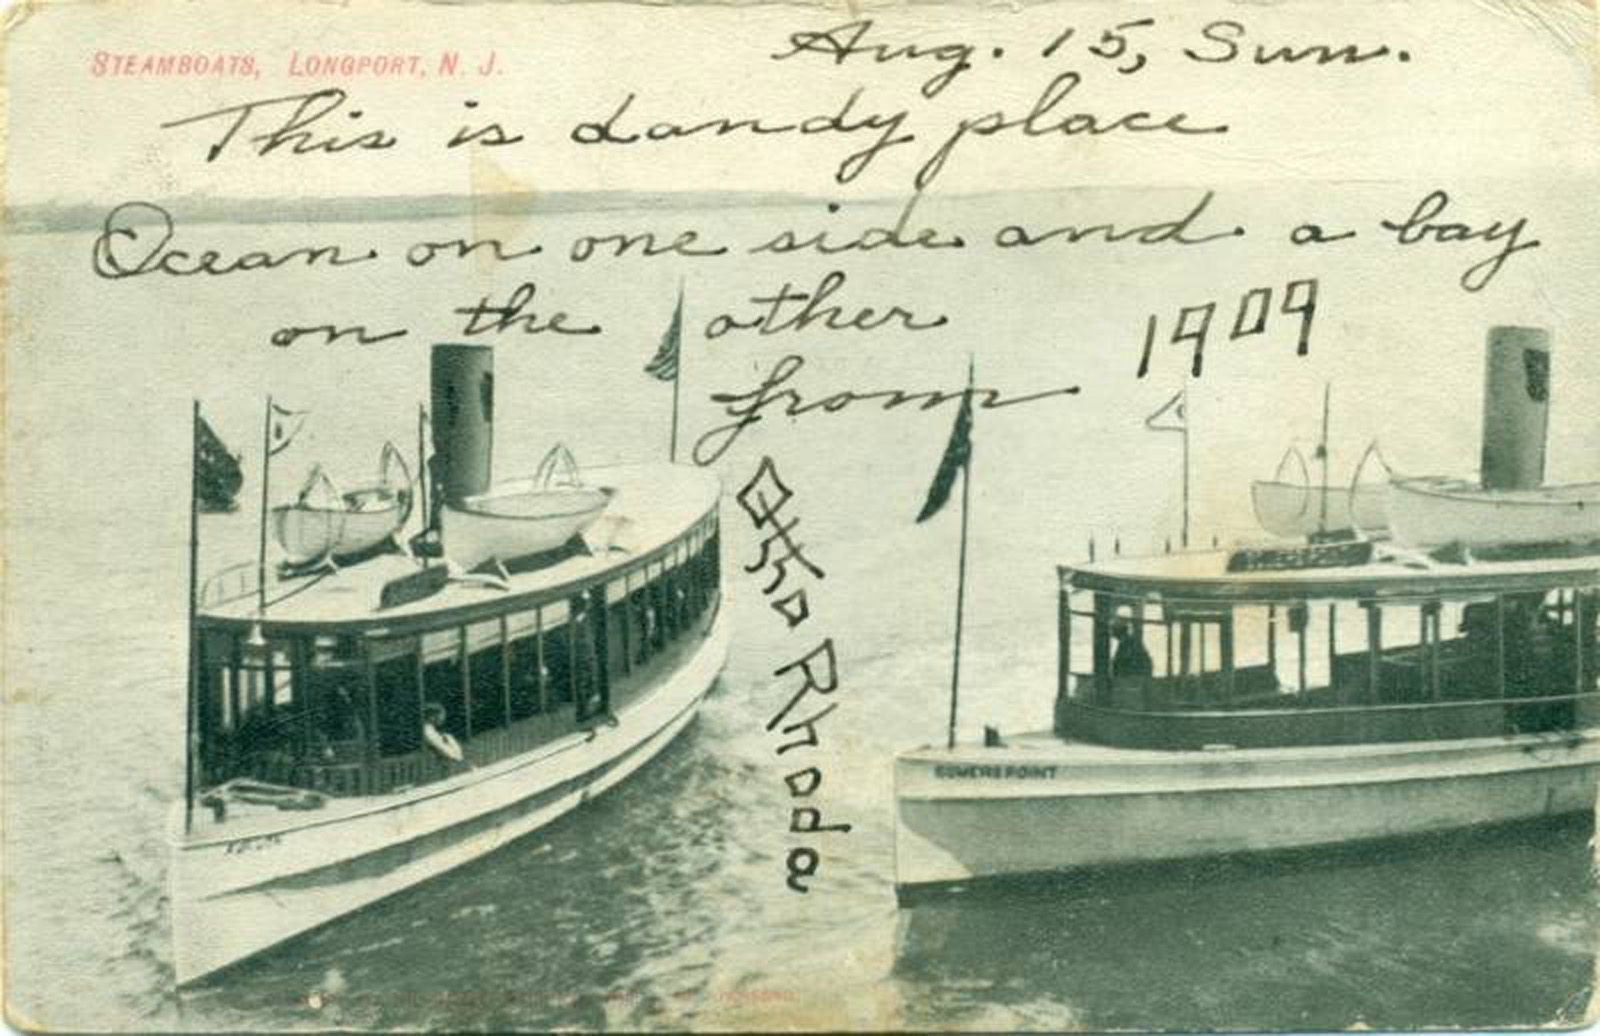 STEAMBOATS, LONGPORT, N. J.
Aug. 15, Sun.
This is dandy place
Ocean on one side and a bay
on the other
from
1909
Otho Rhoda
SOMERS POINT